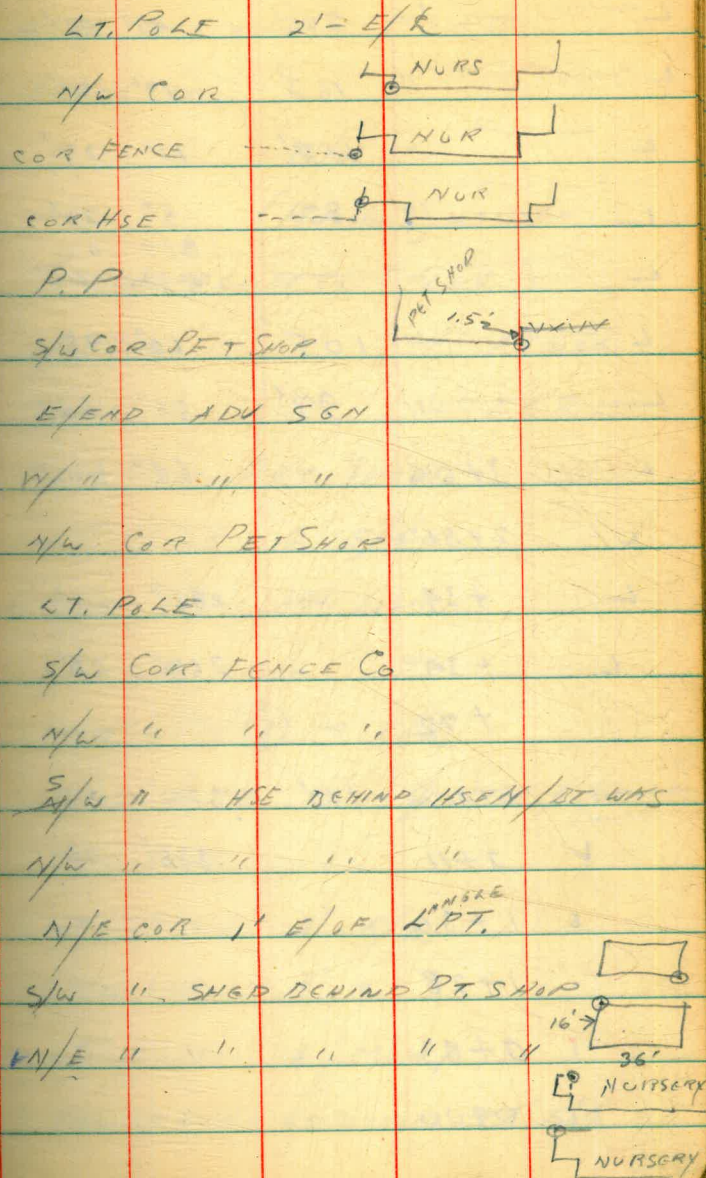 LT. POLE 2' - E/℄
N/W COR NURS
COR FENCE NUR
COR HSE NUR
P.P
PET SHOP
1.5'±
S/W COR PET SHOP.
E/END ADV SGN
W/ " " "
N/W COR PET SHOP
LT. POLE
S/W COR FENCE CO
N/W " " "
S/W " HSE BEHIND HSE N/
N/W " " " "
N/E COR 1' E/OF L PT.
ANGLE
S/W " SHED BEHIND PT. SHOP
16'
N/E " " " " "
36'
NURSERY
NURSERY